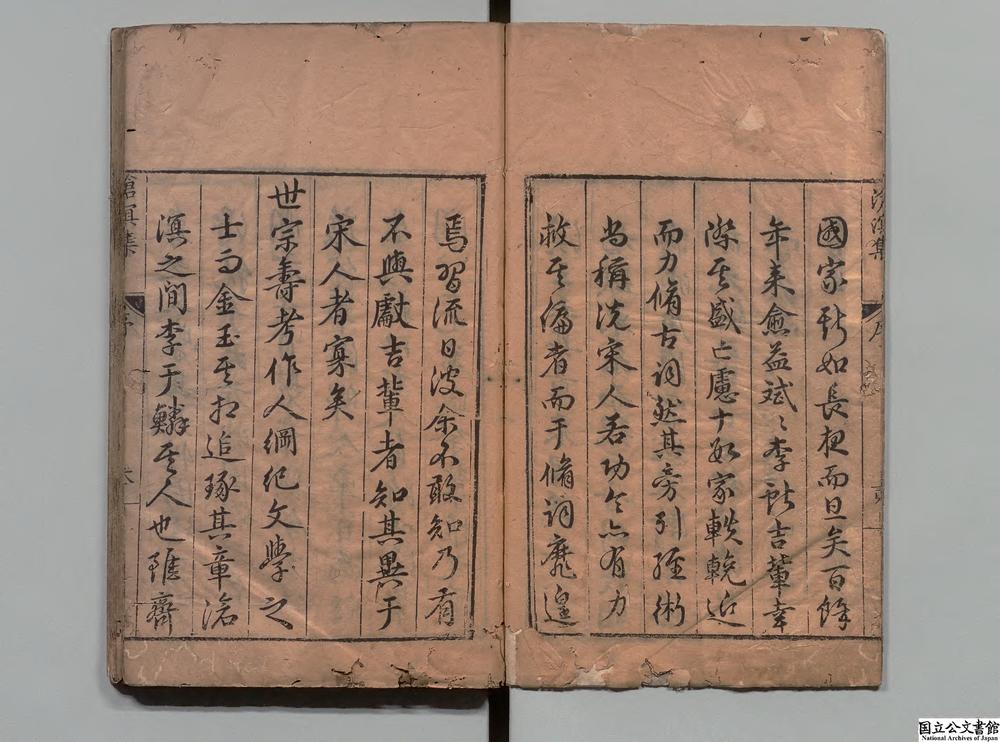 國家彬如長夜而旦矣百餘
年來愈益斌〻李獻吉輩幸
際其盛亡慮十數家軼輓近
而力脩古詞然其旁引經術
尚稱說宋人若功令亦有力
救其偏者而于脩詞靡遑
焉習流日波余不敢知乃有
不與獻吉輩者知其異于
宋人者寡矣
世宗壽考作人綱紀文學之
士而金玉其相追琢其章滄
溟之間李于鱗其人也雖齊
滄溟集
序
滄溟集
序
国立公文書館
National Archives of Japan